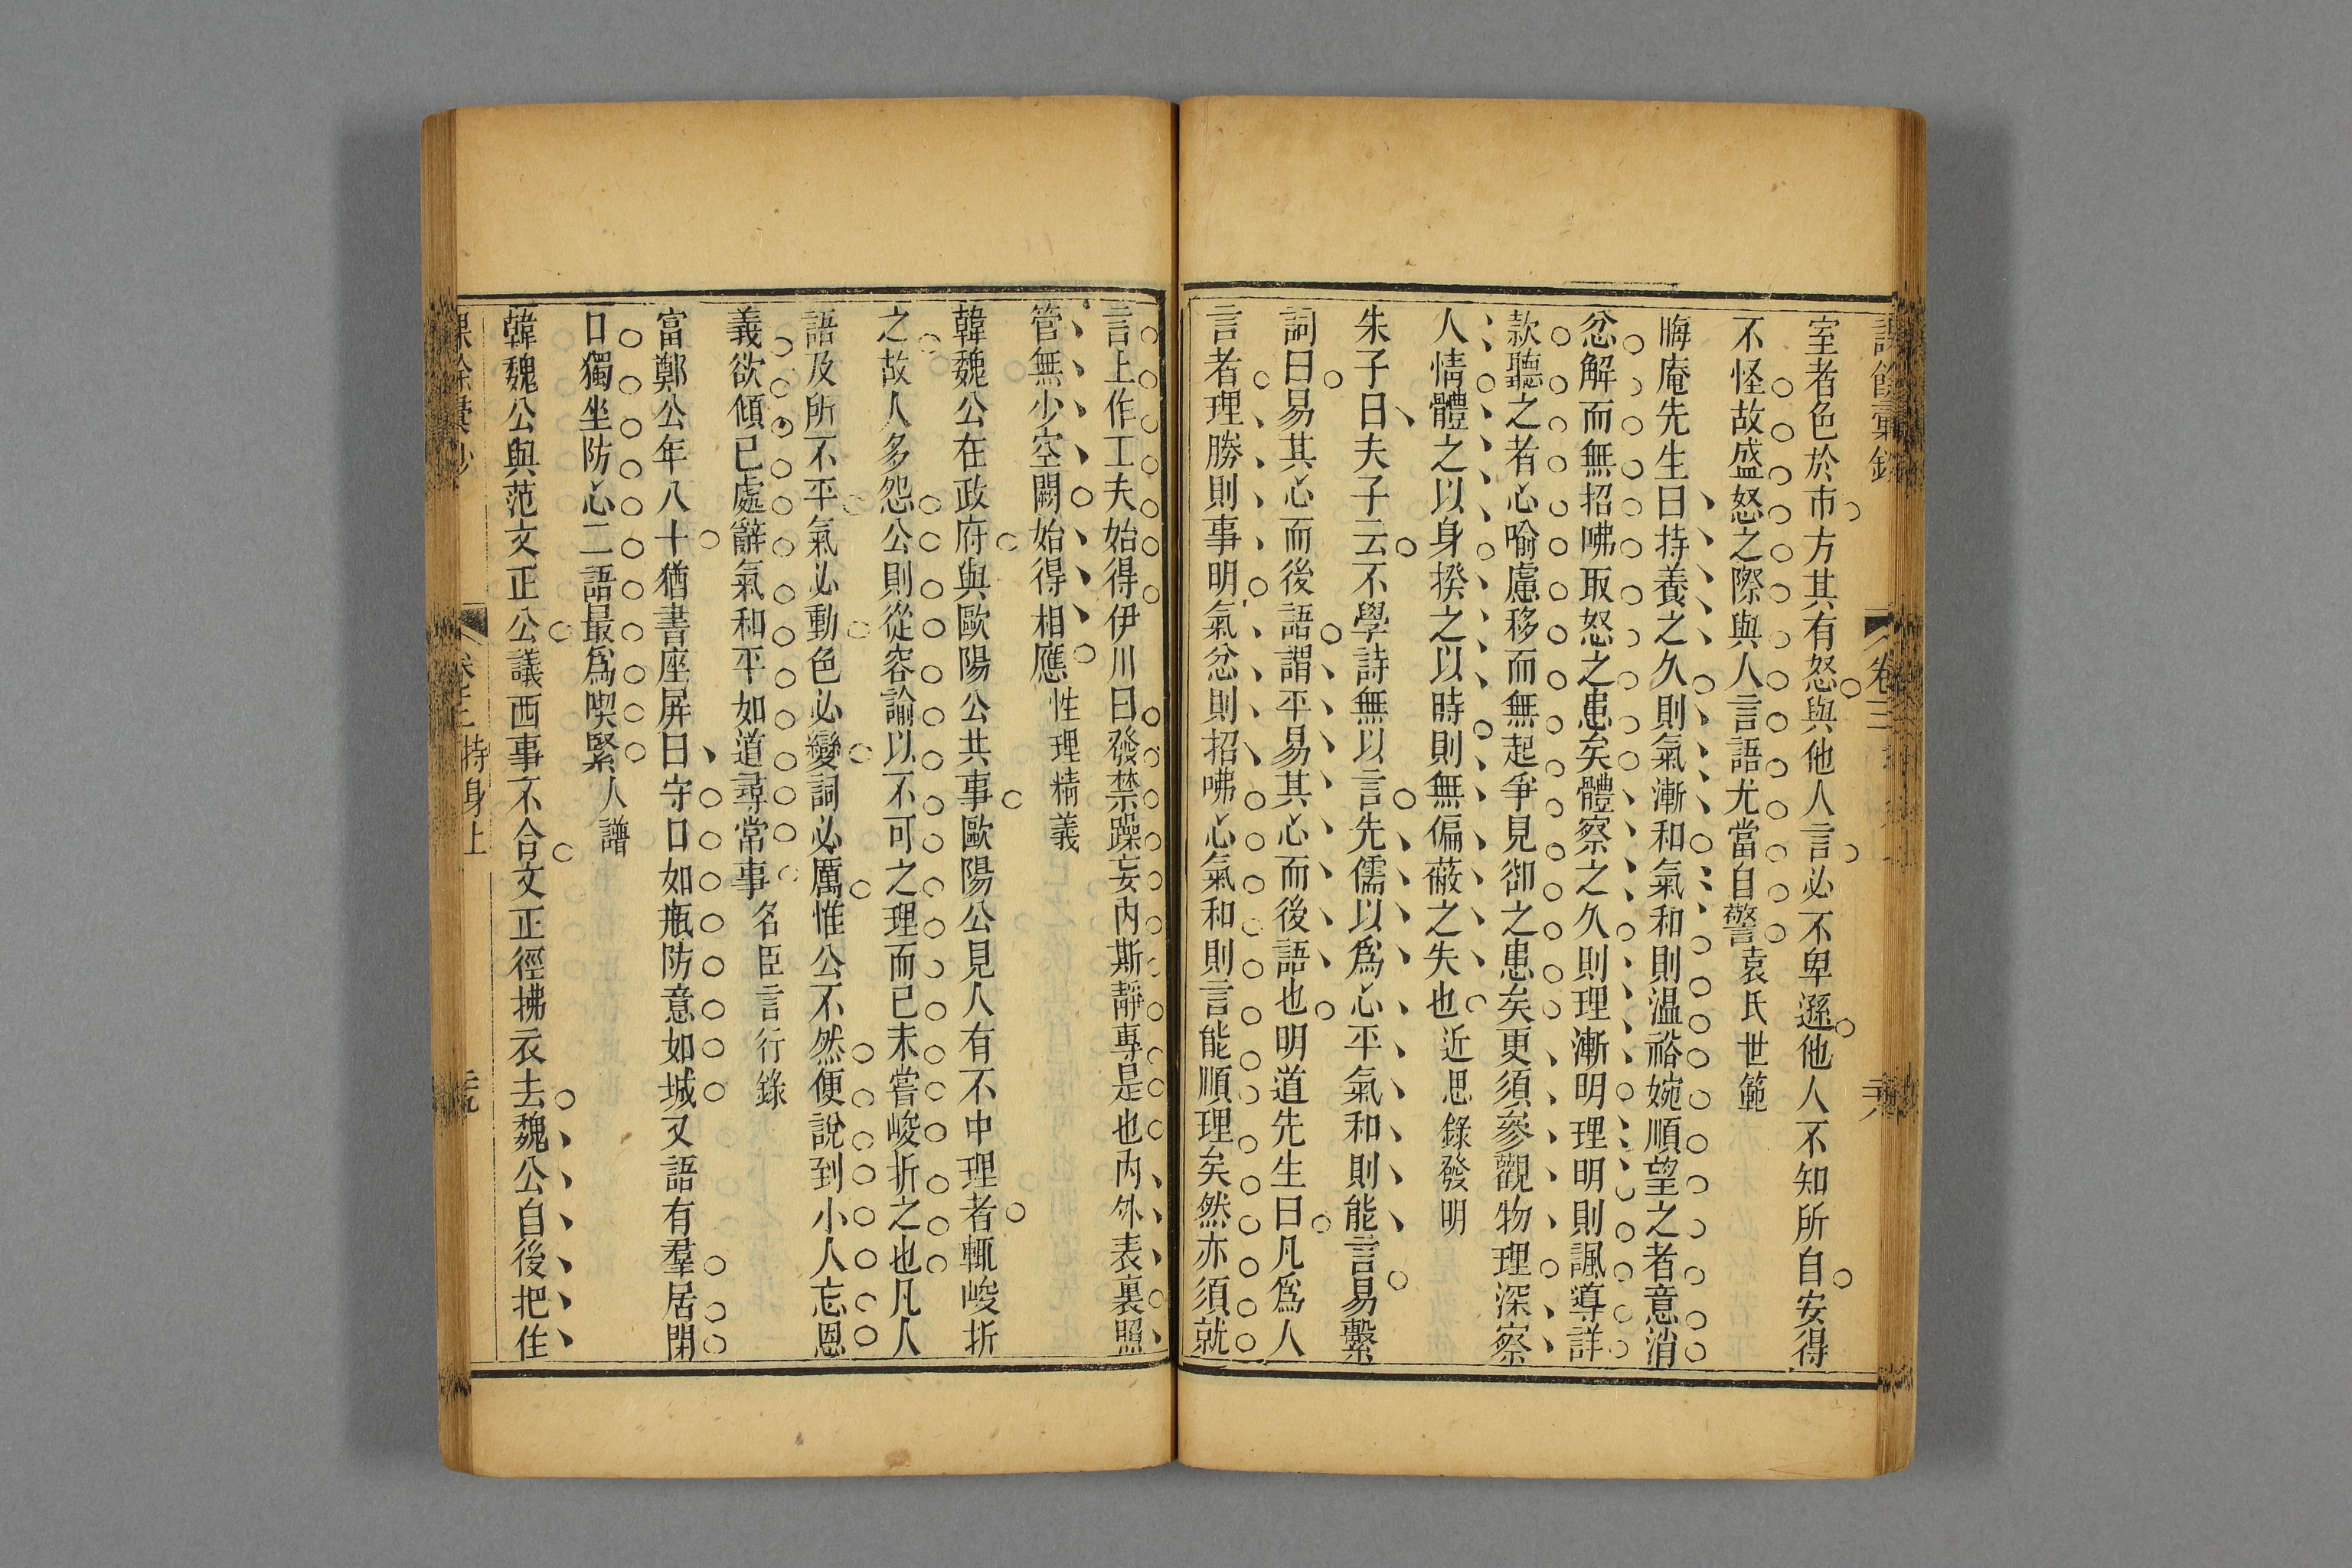 課餘彙鈔 卷三
室者色於市方其有怒與他人言必不卑遜他人不知所自安得
不怪故盛怒之際與人言語尤當自警袁氏世範
晦庵先生曰持養之久則氣漸和氣和則溫裕婉順望之者意消
忿解而無招咈取怒之患矣體察之久則理漸明理明則諷導詳
款聽之者心喻慮移而無起爭見卻之患矣更須參觀物理深察
人情體之以身揆之以時則無偏蔽之失也近思錄發明
朱子曰夫子云不學詩無以言先儒以爲心平氣和則能言易繫
詞曰易其心而後語謂平易其心而後語也明道先生曰凡爲人
言者理勝則事明氣忿則招咈心氣和則言能順理矣然亦須就
言上作工夫始得伊川曰發禁躁妄內斯靜專是也內外表裏照
管無少空闕始得相應性理精義
韓魏公在政府與歐陽公共事歐陽公見人有不中理者輒峻折
之故人多怨公則從容諭以不可之理而已未嘗峻折之也凡人
語及所不平氣必動色必變詞必厲惟公不然便說到小人忘恩
義欲傾已處辭氣和平如道尋常事名臣言行錄
富鄭公年八十猶書座屏曰守口如瓶防意如城又語有羣居閉
口獨坐防心二語最爲喫緊人譜
韓魏公與范文正公議西事不合文正徑拂衣去魏公自後把住
課餘彙鈔 卷三 持身上